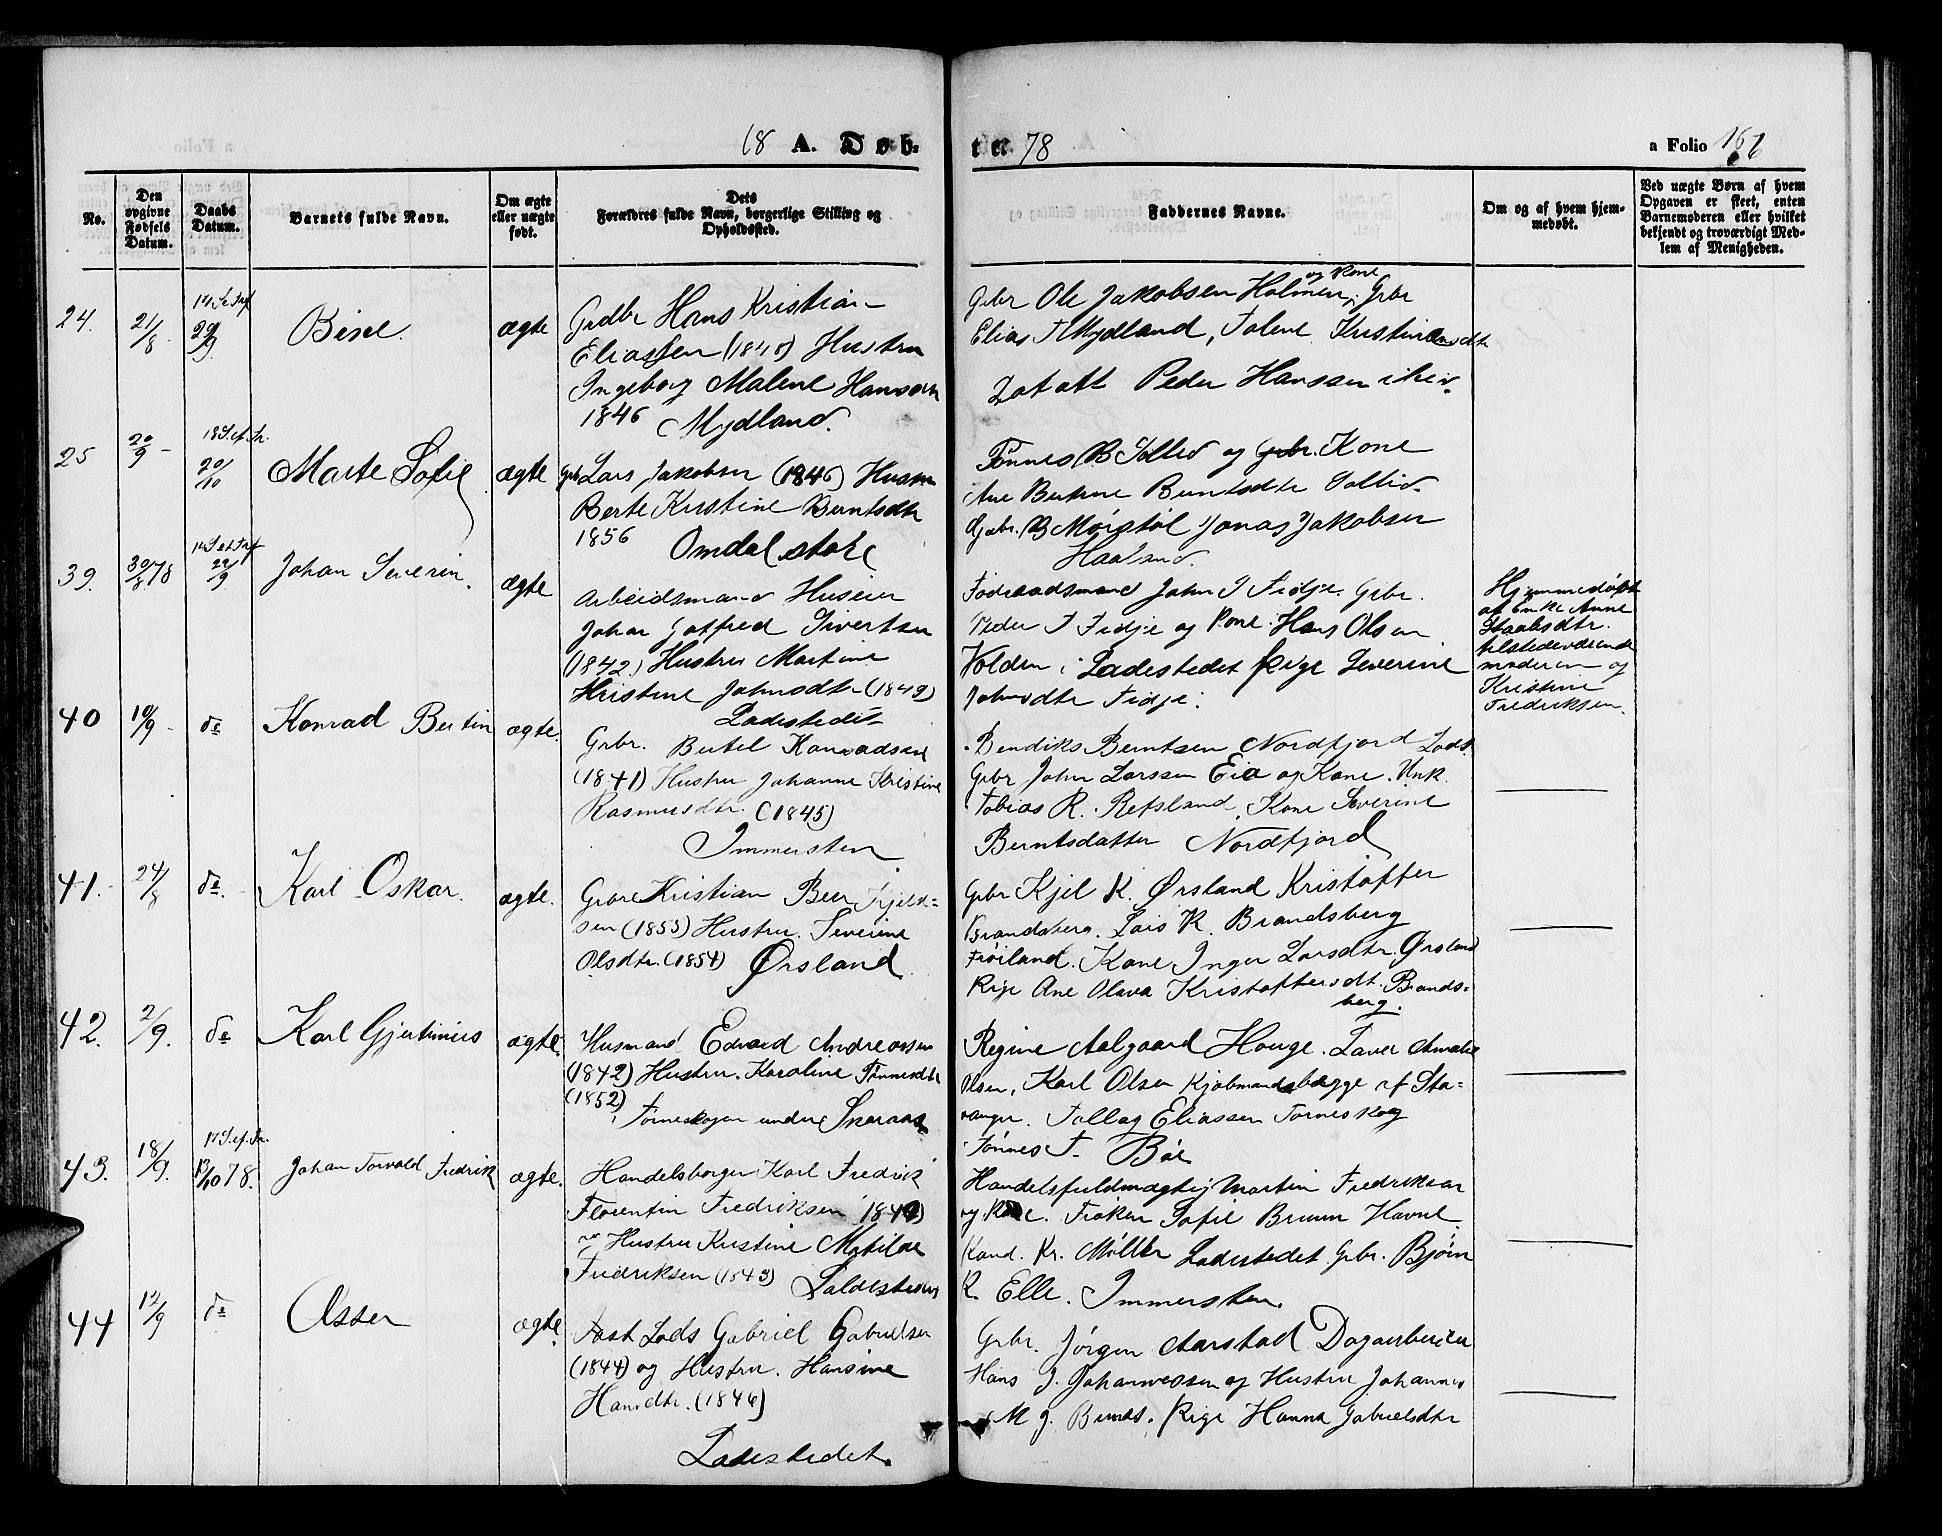 18 A. Døb-
te. 78
a Folio 166
No.
Den opgivne Fødsels Datum.
Daabs Datum.
Barnets fulde Navn.
Om ægte eller uægte født.
Dets
Forældres fulde Navn, borgerlige Stilling og
Opholdssted.
Faddernes Navne.
Om og af hvem hjem-
medøbt.
Ved uægte Børn af hvem
Opgaven er skeet, enten
Barnemoderen eller hvilket
bekjendt og troværdigt Med-
lem af Menigheden.
24. 21/8 29/9 ægte
Hans Kristian
Eliassen Hustru
Ingeborg Malene
1846 Mydland.
Grbr Ole Jakobsen Holmen og Kone, Grbr
Elias Mydland, Tolene
Peder Hanssen
25 20/9 20/10 Marte Sofie ægte
Lars Jakobsen (1846) Hustru
Berte Kristine Berntsdtr
1856 Omdal store
Tønnes og Kone
Ane Berntsdtr
Jonas Jakobsen
Haaland.
39. 30/8 78 29/9 Johan Severin. ægte
Arbeidsmand Huseier
Johan Gotfred Sivertsen
(1842) Hustru Martine
Kristine Johnsdtr (1849)
Ladestedet
Føderaadsmand John Fidje. Grbr.
Peder T Fidje og Kone. Hans Olsen
Volden i Ladestedet Pige Severine
Johnsdtr Fidje.
Hjemmedøbt
af Enke Anne
tilstedeværende
moderen og
Kristine
Fredriksen.
40 10/9 de Konrad Bertin ægte.
Grbr. Bertel Konradsen
(1841) Hustru Johanne Kristine
Rasmusdtr. (1845)
Immersten
Bendiks Berntsen Nordfjord Lods
Grbr John Larssen Eia og Kone. Unk.
Tobias R. Refsland, Kone Severine
Berntsdatter Nordfjord
41. 24/8 de. Karl Oskar. ægte.
Kristian Beer Kjels-
sen (1853) Hustru. Severine
Olsdtr. (1854) Ørsland
Grbr Kjel K. Ørsland Kristoffer
Brandsberg. Lars K. Brandsberg
Frøiland. Kone Inger Larsdtr. Ørsland
Pige Ane Olava Kristoffersdt. Brands-
berg.
42. 2/9. de Karl Gjertinius ægte.
Husmand Edvard Andreassen
(1842) Hustru. Karoline Tønnesdtr
(1852)
Torneskogen under
Regine Aalgaard Houge.
Olsen, Karl Olsen begge af Sta-
vanger. Tallag Eliassen Torneskog
Tønnes T. Bøe
43. 18/9. 13/10 78. Johan Torvald Fredrik ægte.
Handelsborger Karl Fredrik
Florentin Fredriksen
og Hustru Kristine Matilde
Fredriksen (1843) Ladestedet
Handelsfuldmægtig Martin Fredriksen
og Kone. Frøken Sofie Bruun Havne.
Kand. Kr. Møller Ladestedet Grbr. Bjørn
K. Elle. Immersten.
44 12/9 de Asser ægte.
Fast Lods Gabriel Gabrielsen
(1844) og Hustru. Hansine
Hansdtr. (1846)
Ladestedet.
Grbr. Jørgen Aarstad Dagarbeider
Hans J. Johannessen og Hustru Johanne
M J. Pige Hanna Gabrielsdtr